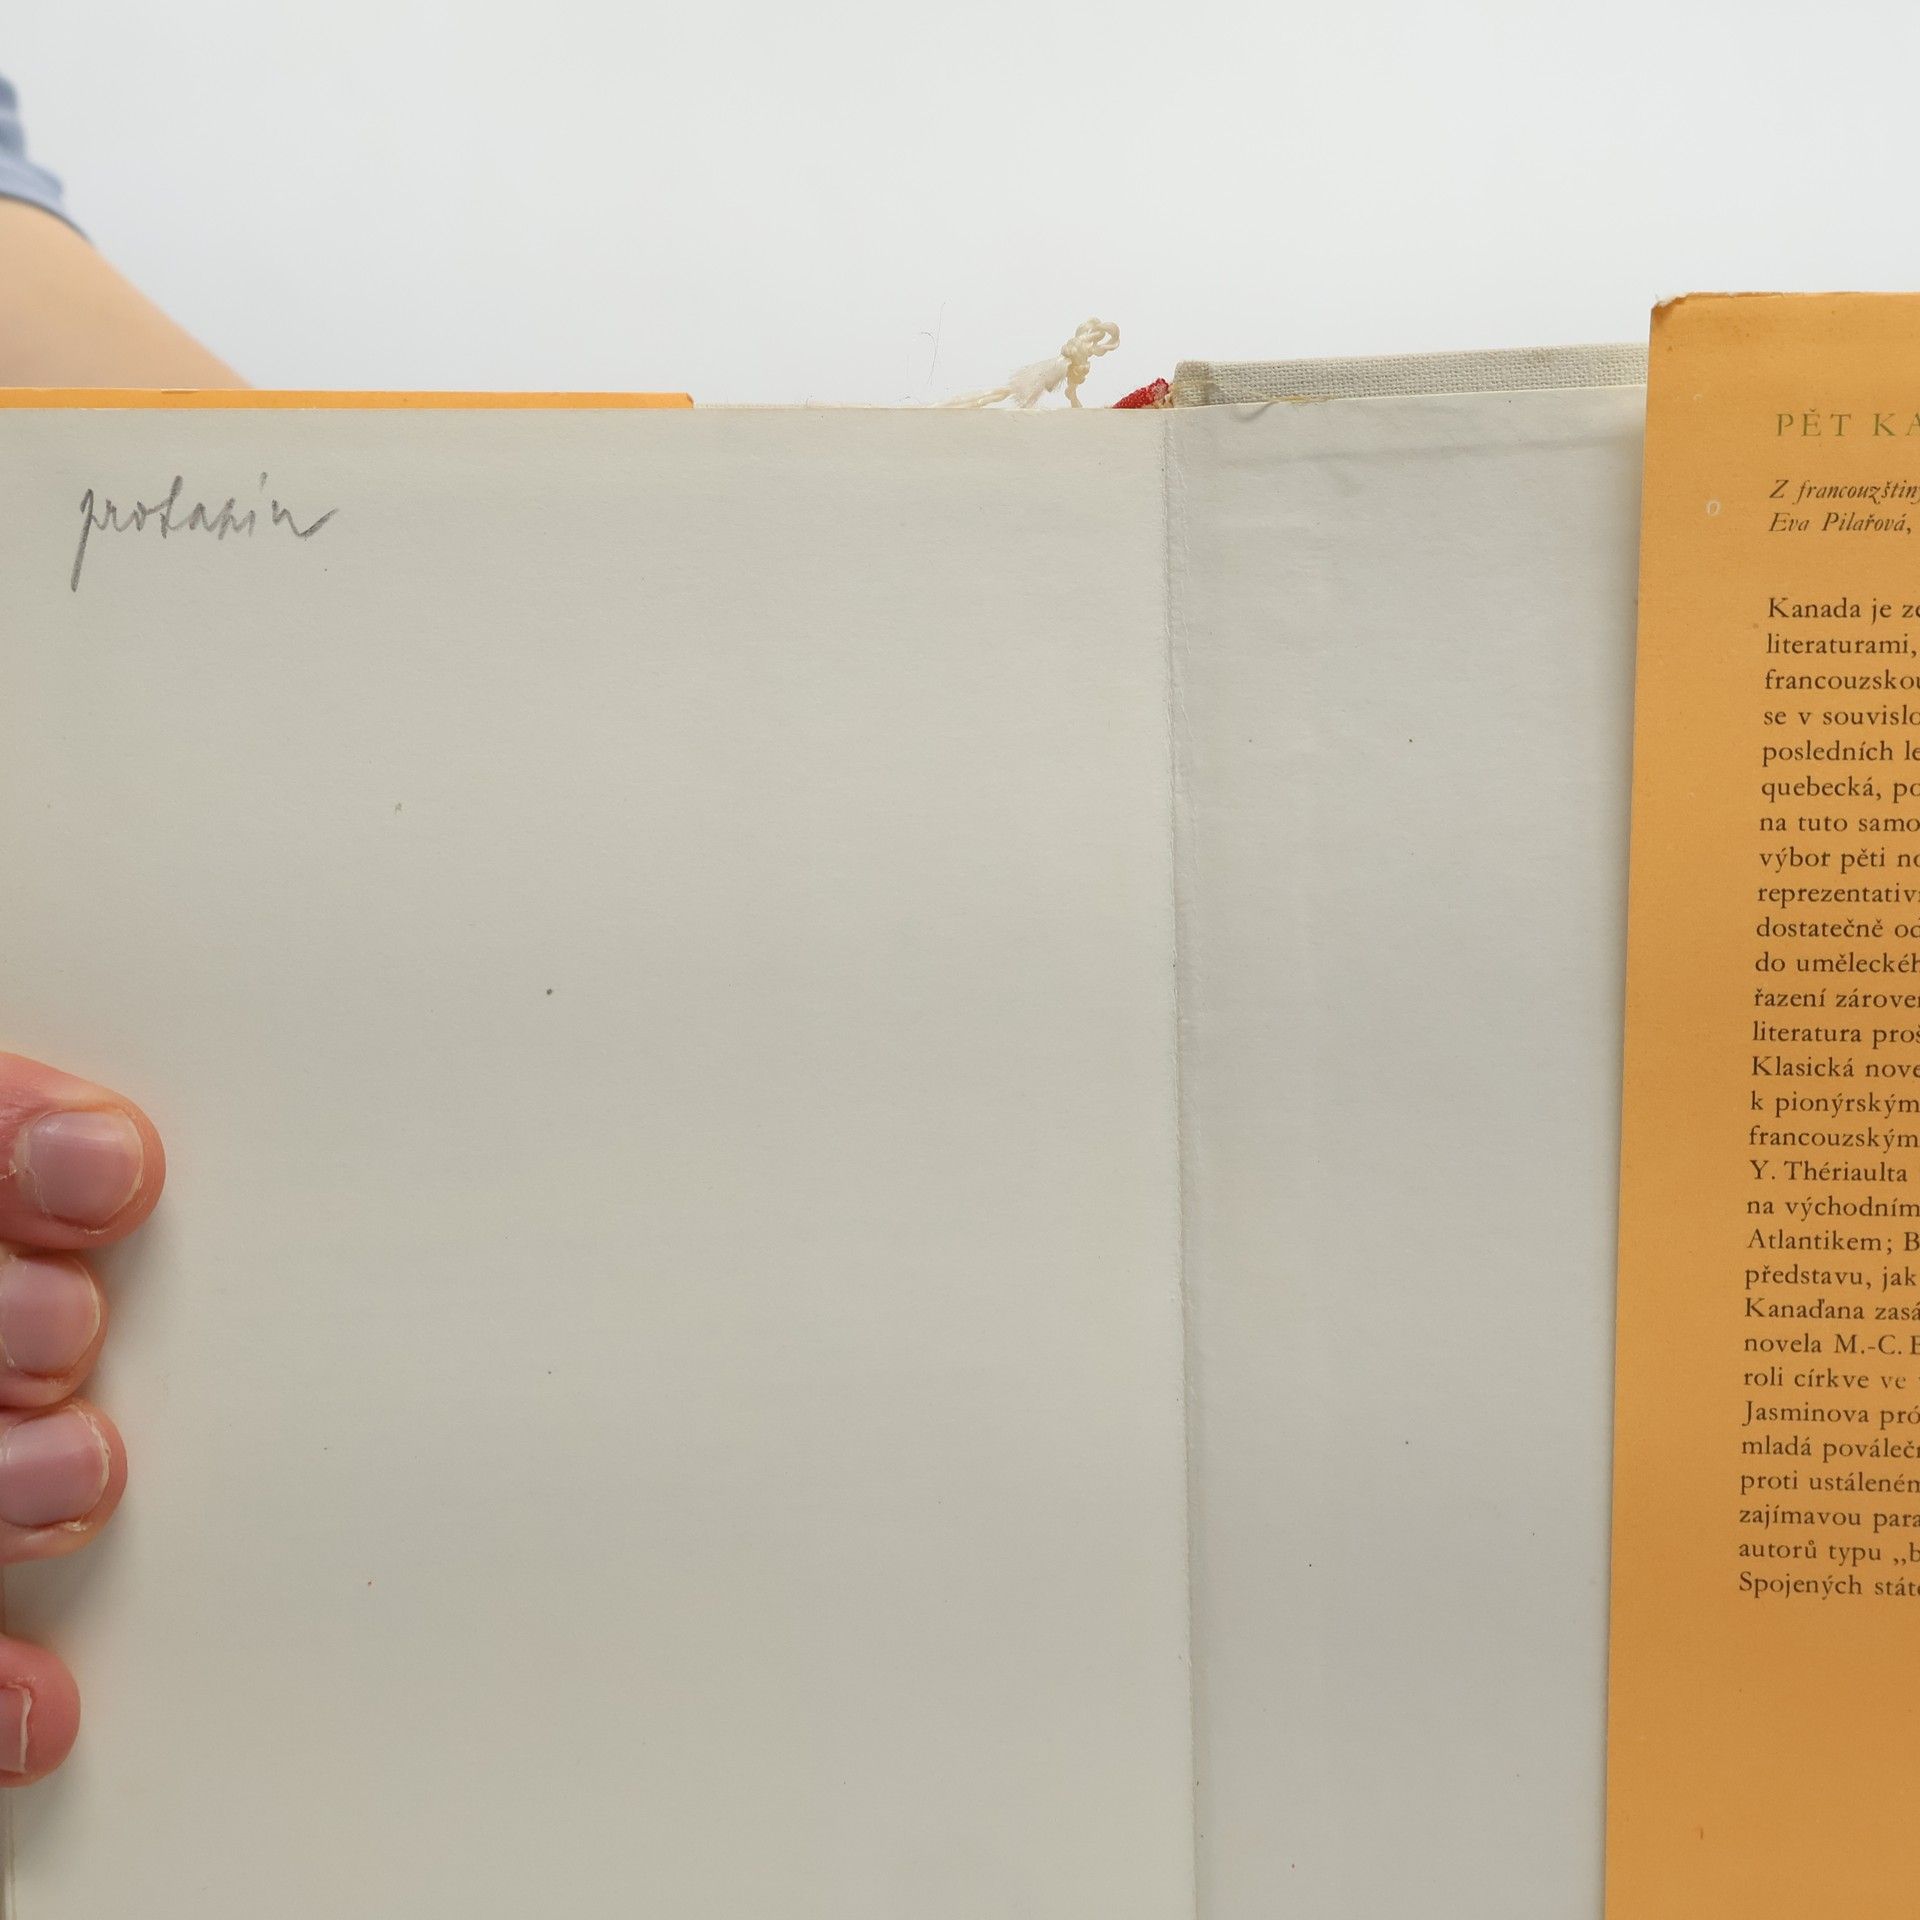 PĚT KA
Z francouzštiny
Eva Pilařová,
Kanada je ze
literaturami,
francouzskou
se v souvislo
posledních le
quebecká, po
na tuto samo
výbor pěti no
reprezentativn
dostatečně od
do uměleckéh
řazení zároveň
literatura proš
Klasická nove
k pionýrským
francouzským
Y. Thériaulta
na východním
Atlantikem; B
představu, jak
Kanaďana zasá
novela M.-C. B
roli církve ve
Jasminova pró
mladá poválečn
proti ustáleném
zajímavou para
autorů typu „b
Spojených státe